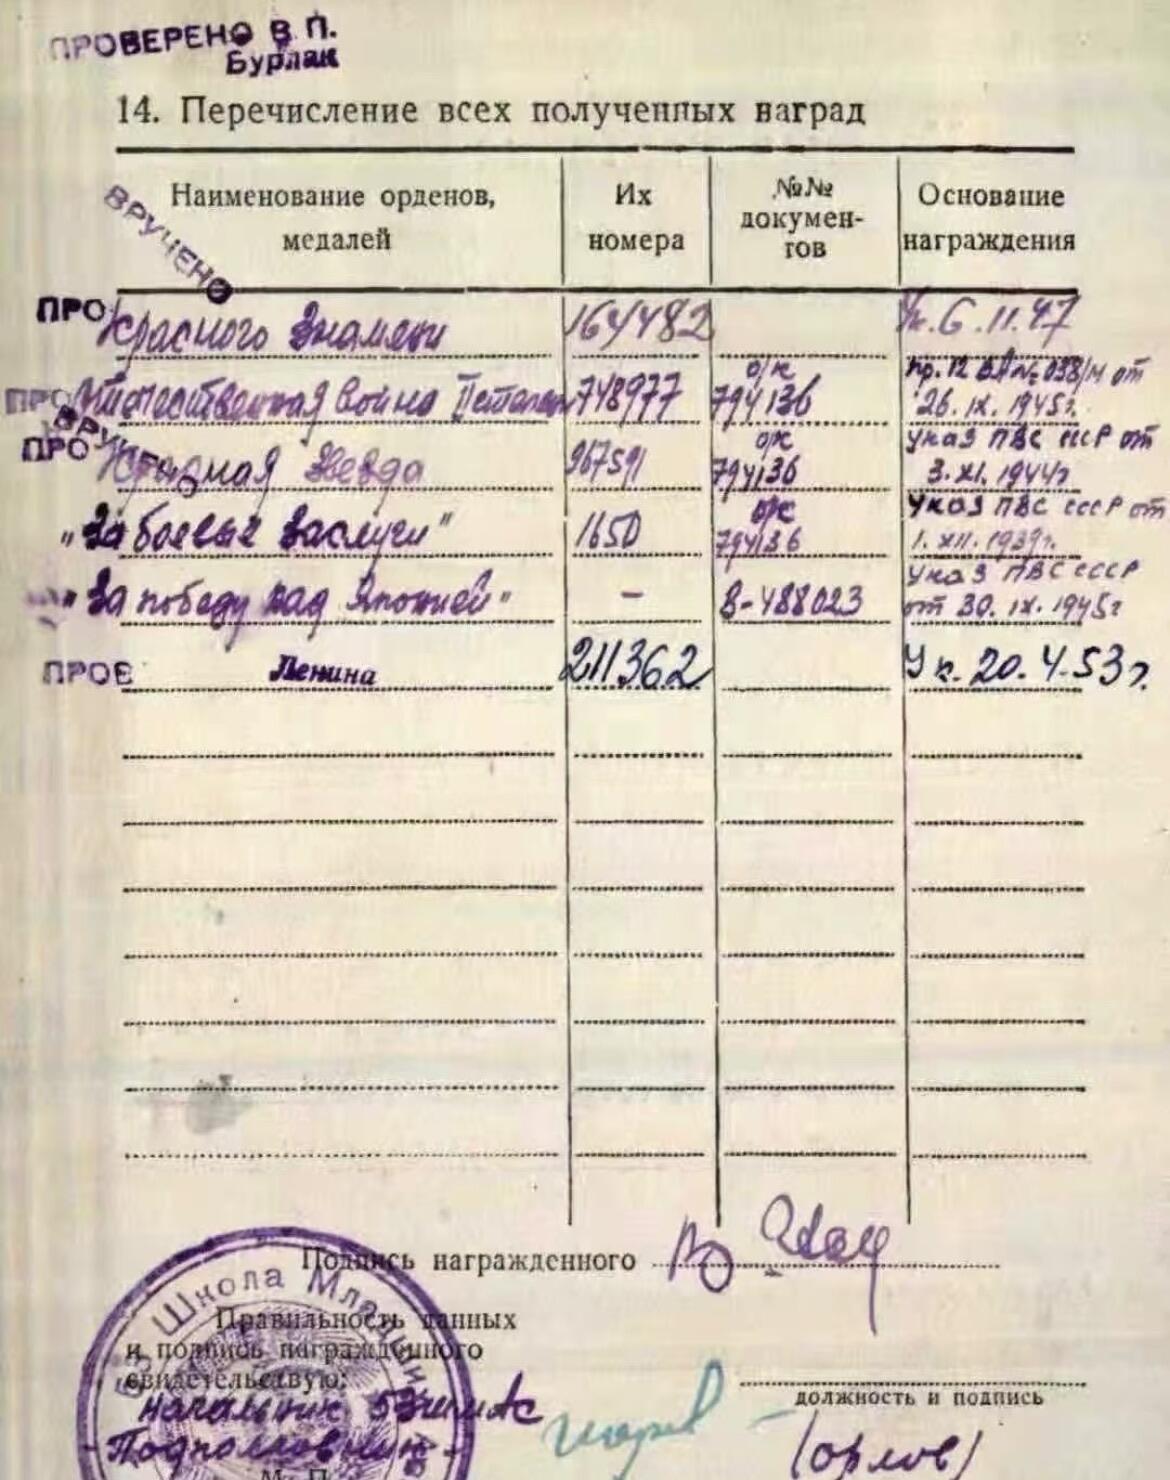 ПРОВЕРЕНО В. П.
Бурлак
14. Перечисление всех полученных наград
ВРУЧЕНО
Наименование орденов, медалей
Их номера
№№ докумен-тов
Основание награждения
ПРО Красного Знамени 164482 Ук. 6.11.47
о/к Пр. 12 ВА № 038/н от
ПРО Отечественная война II степени 748977 794136 26.IX.1945г.
о/к Указ ПВС СССР от
ПРО Красная Звезда 967591 794136 3.XI.1944г
о/к Указ ПВС СССР от
"За боевые заслуги" 1650 794136 1.XII.1939г.
Указ ПВС СССР
"За победу над Японией" - В-488023 от 30.IX.1945г
ПРОВ Ленина 211362 Ук. 20.4.53г.
Подпись награжденного
Школа Младши
Правильность данных
и подпись награжденного
свидетельствую:
должность и подпись
Начальник 53 ШМАС
Подполковник
(Орлов)
М. П.